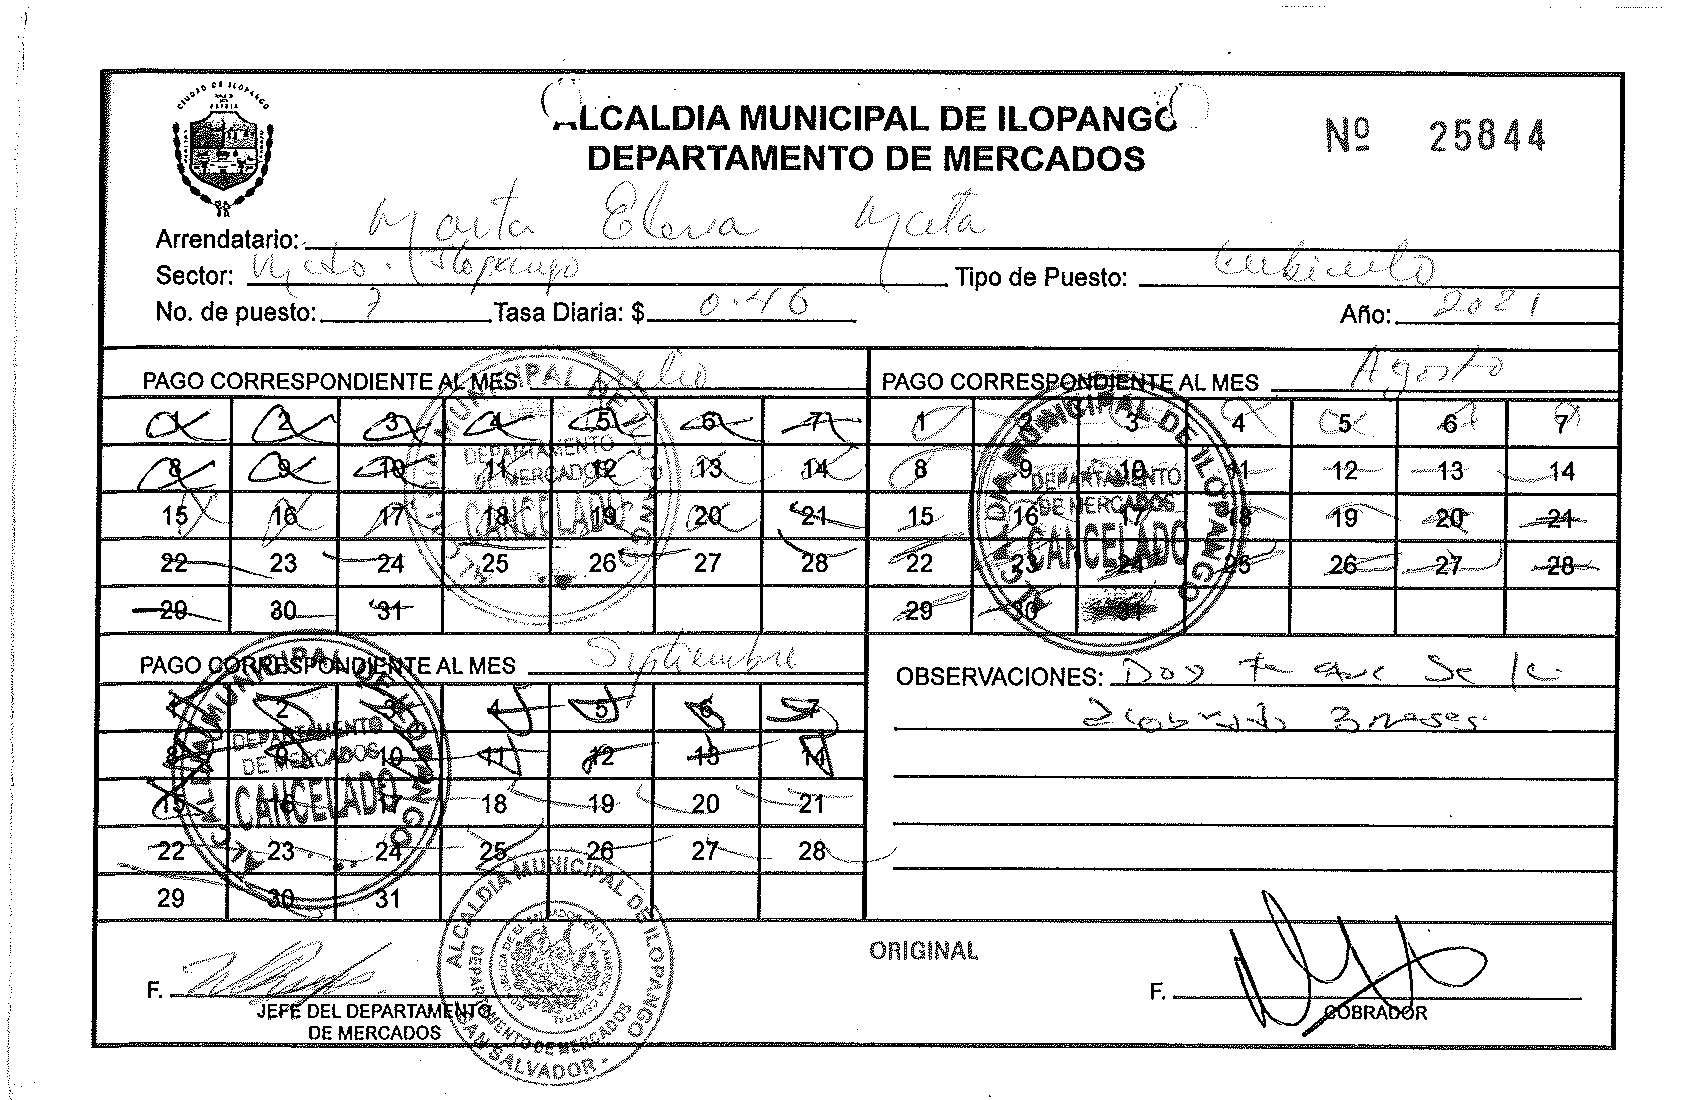 CIUDAD DE ILOPANGO
ALCALDIA MUNICIPAL DE ILOPANGO
Nº 25844
DEPARTAMENTO DE MERCADOS
Arrendatario: Marta Elena Mata
Sector: Ilopango Tipo de Puesto: Cubiculo
No. de puesto: 7 Tasa Diaria: $ 0.46 Año: 2021
PAGO CORRESPONDIENTE AL MES Julio
1 2 3 4 5 6 7
8 9 10 11 12 13 14
15 16 17 18 19 20 21
22 23 24 25 26 27 28
29 30 31
ALCALDIA MUNICIPAL DE ILOPANGO
DEPARTAMENTO
DE MERCADOS
CANCELADO
PAGO CORRESPONDIENTE AL MES Agosto
1 2 3 4 5 6 7
8 9 10 11 12 13 14
15 16 17 18 19 20 21
22 23 24 25 26 27 28
29 30 31
ALCALDIA MUNICIPAL DE ILOPANGO
DEPARTAMENTO
DE MERCADOS
CANCELADO
PAGO CORRESPONDIENTE AL MES Septiembre
1 2 3 4 5 6 7
8 9 10 11 12 13 14
15 16 17 18 19 20 21
22 23 24 25 26 27 28
29 30 31
ALCALDIA MUNICIPAL DE ILOPANGO
DEPARTAMENTO
DE MERCADOS
CANCELADO
OBSERVACIONES: Doy fe que se le
3 meses
F.
JEFE DEL DEPARTAMENTO
DE MERCADOS
ALCALDIA MUNICIPAL DE ILOPANGO
DEPARTAMENTO DE MERCADOS
SAN SALVADOR
ORIGINAL
F.
COBRADOR